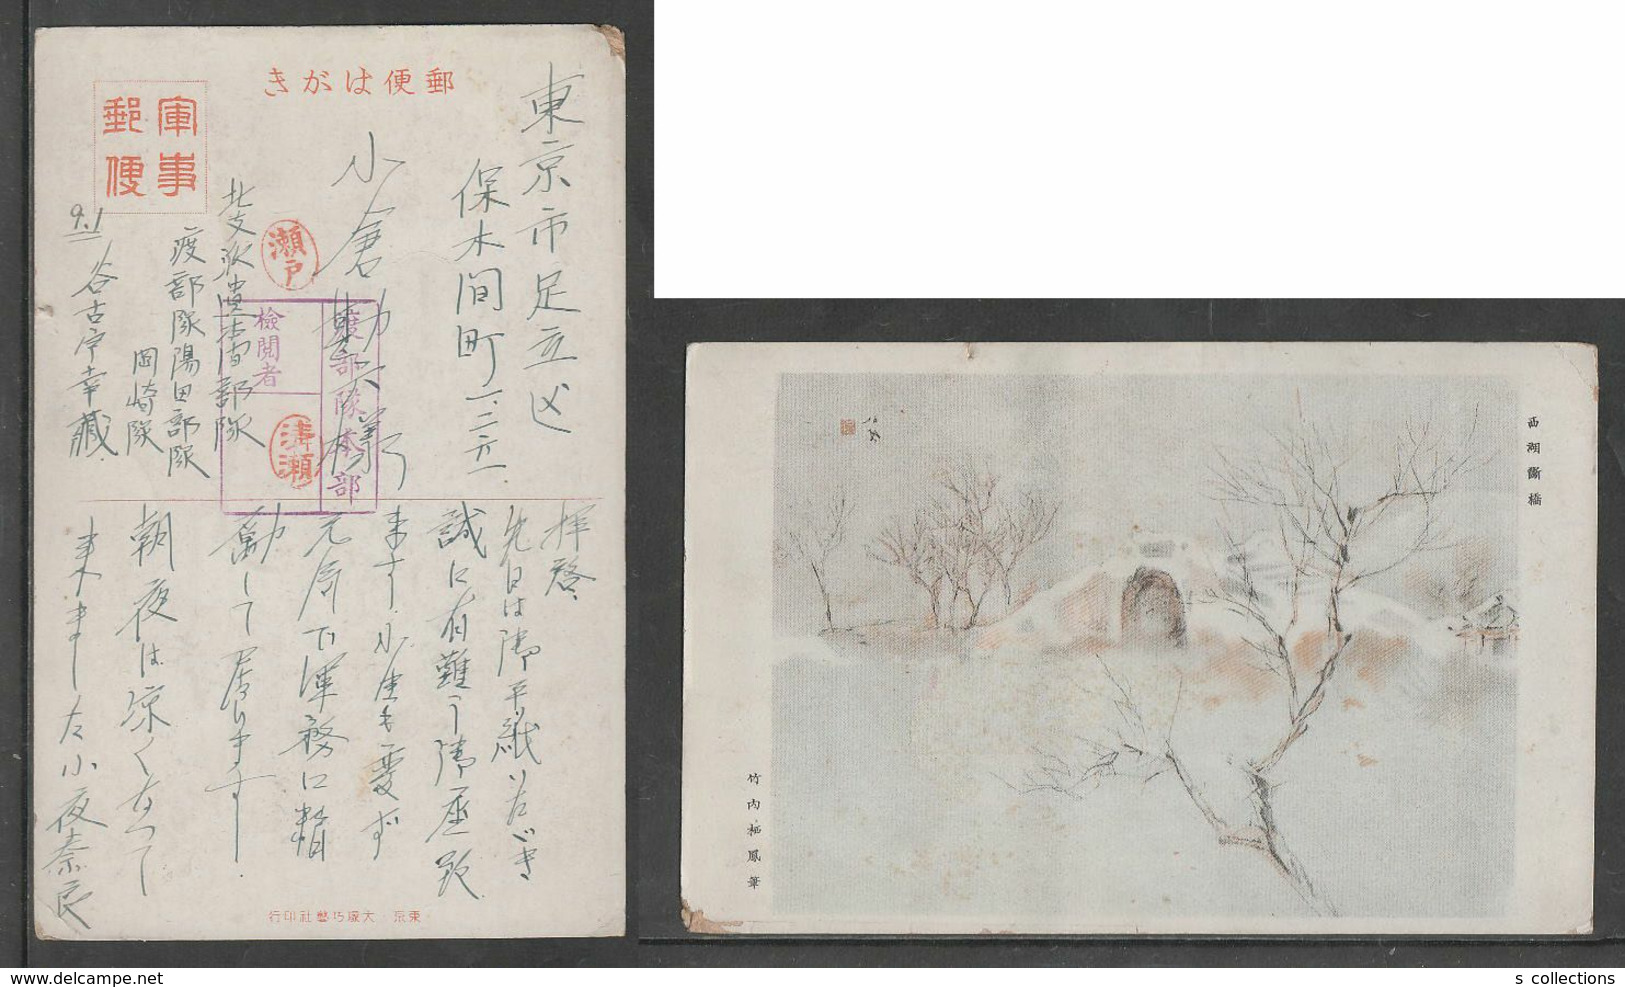 郵便はがき
軍事
郵便
東京市足立区
保木間町一、二六一
小倉
北支派遣
部隊
渡部隊陽田部隊
岡崎隊
谷古宇幸藏
9.1
瀬戸
渡部隊本部
檢閲者
拝啓
先日は御手紙いたゞき
誠に有難う御座
ます 小生も変ず
元
軍務に精
勵して居ります
朝夜は涼くなって
来ました 小
東京 大塚巧藝社印行
西湖斷橋
竹内栖鳳筆
s collections